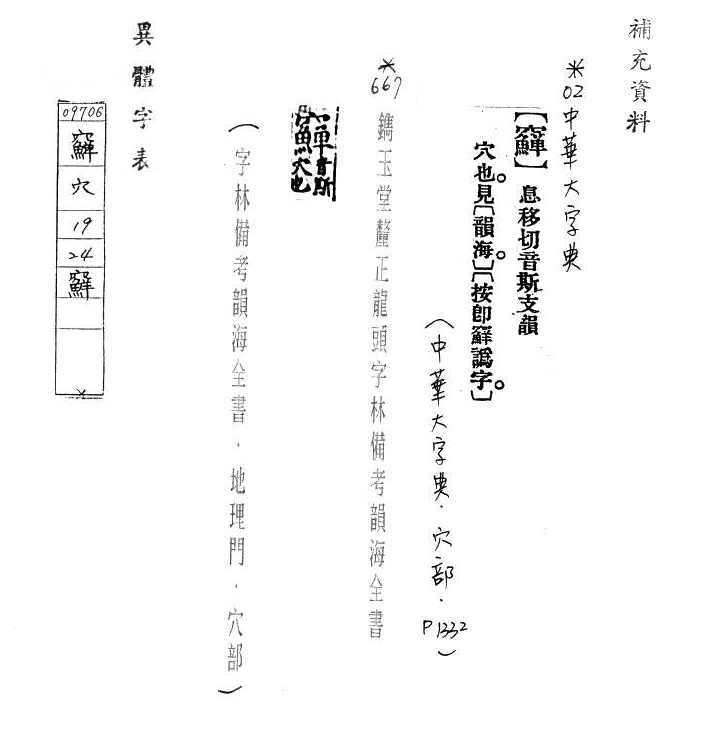 補充資料
*02中華大字典
【】息移切音斯支韻
穴也。見〔韻海。〕〔按卽譌字。〕
(中華大字典．穴部．P1332)
*667
鐫玉堂釐正龍頭字林備考韻海全書
音斯
穴也
(字林備考韻海全書．地理門．穴部)
異體字表
09706
穴
19
24